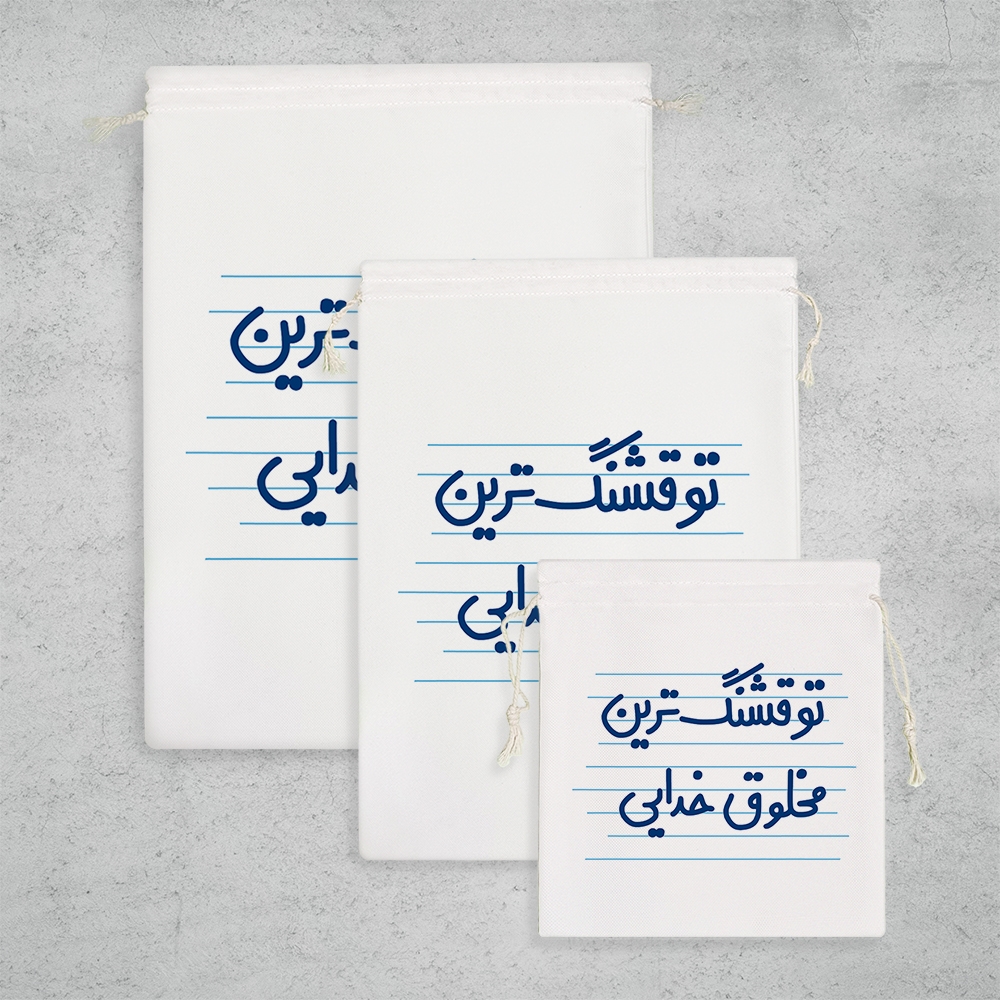 ترین
دایی
تو قشنگ ترین
دایی
تو قشنگ ترین
مخلوق خدایی